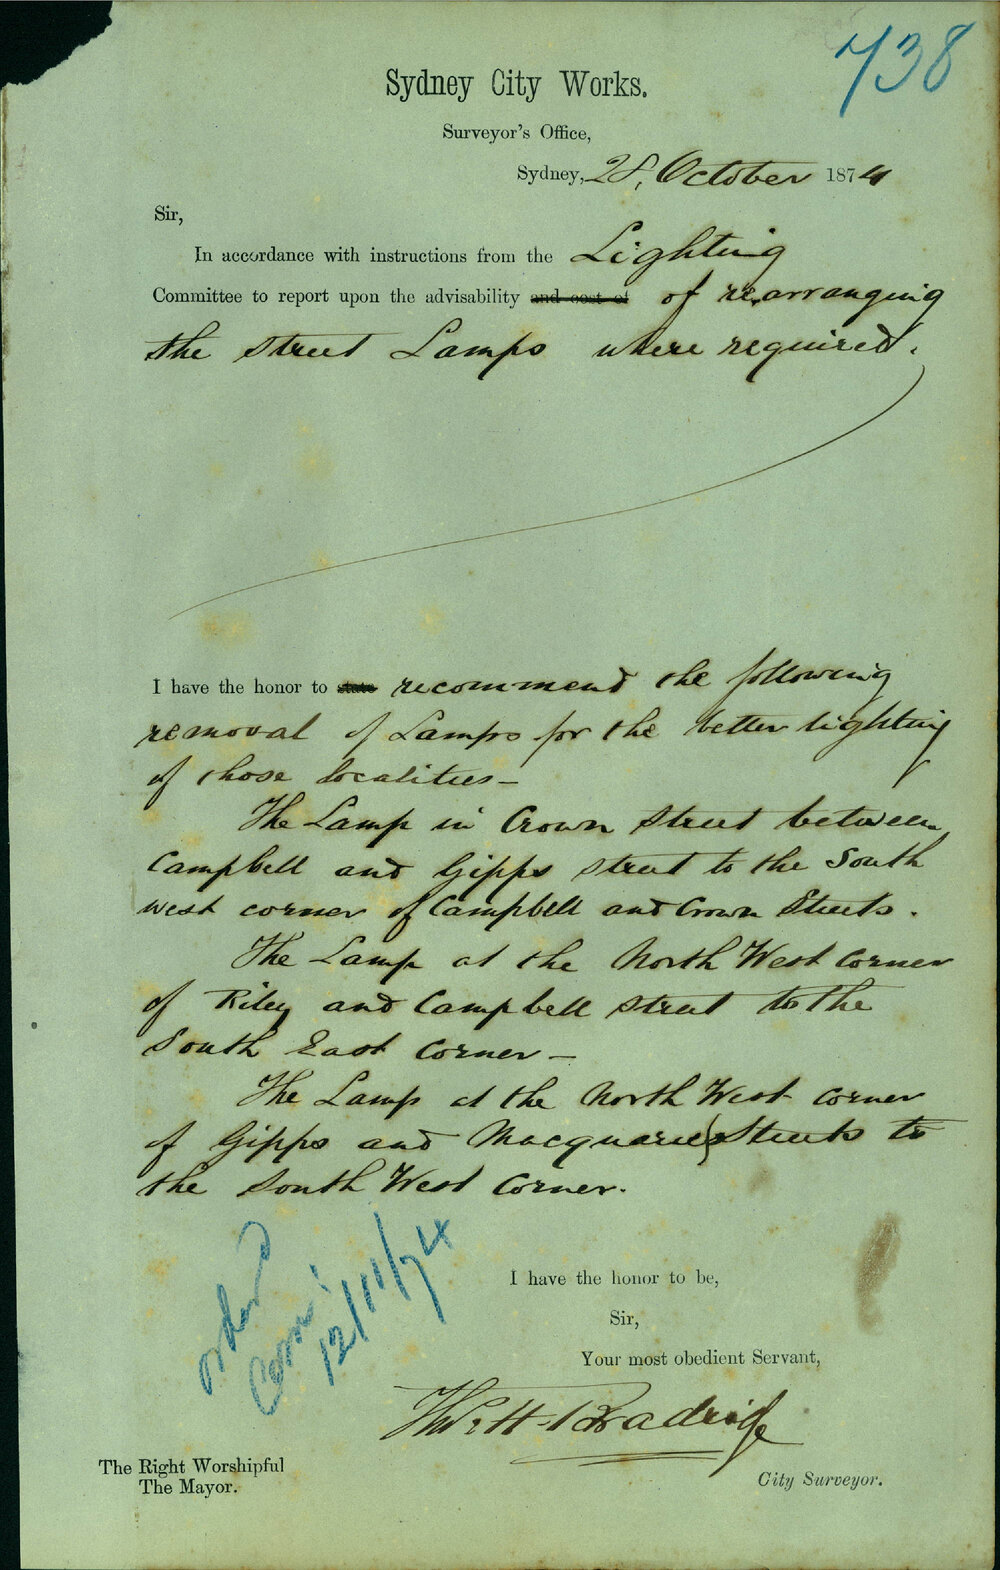 738
Sydney City Works.
Surveyor's Office,
Sydney, 28, October 1874
Sir,
In accordance with instructions from the Lighting
Committee to report upon the advisability and cost of of rearranging
the Street Lamps where required.
I have the honor to state recommend the following
removal of Lamps for the better lighting
of those localities—
The Lamp in Crown Street between
Campbell and Gipps Street to the South
West corner of Campbell and Crown Streets.
The Lamp at the North West Corner
of Riley and Campbell Street to the
South East Corner—
The Lamp at the North West corner
of Gipps and Macquarie Streets to
the South West Corner.
order
Com:
12/11/74
I have the honor to be,
Sir,
Your most obedient Servant,
Thos H. Bradridge
The Right Worshipful
The Mayor.
City Surveyor.